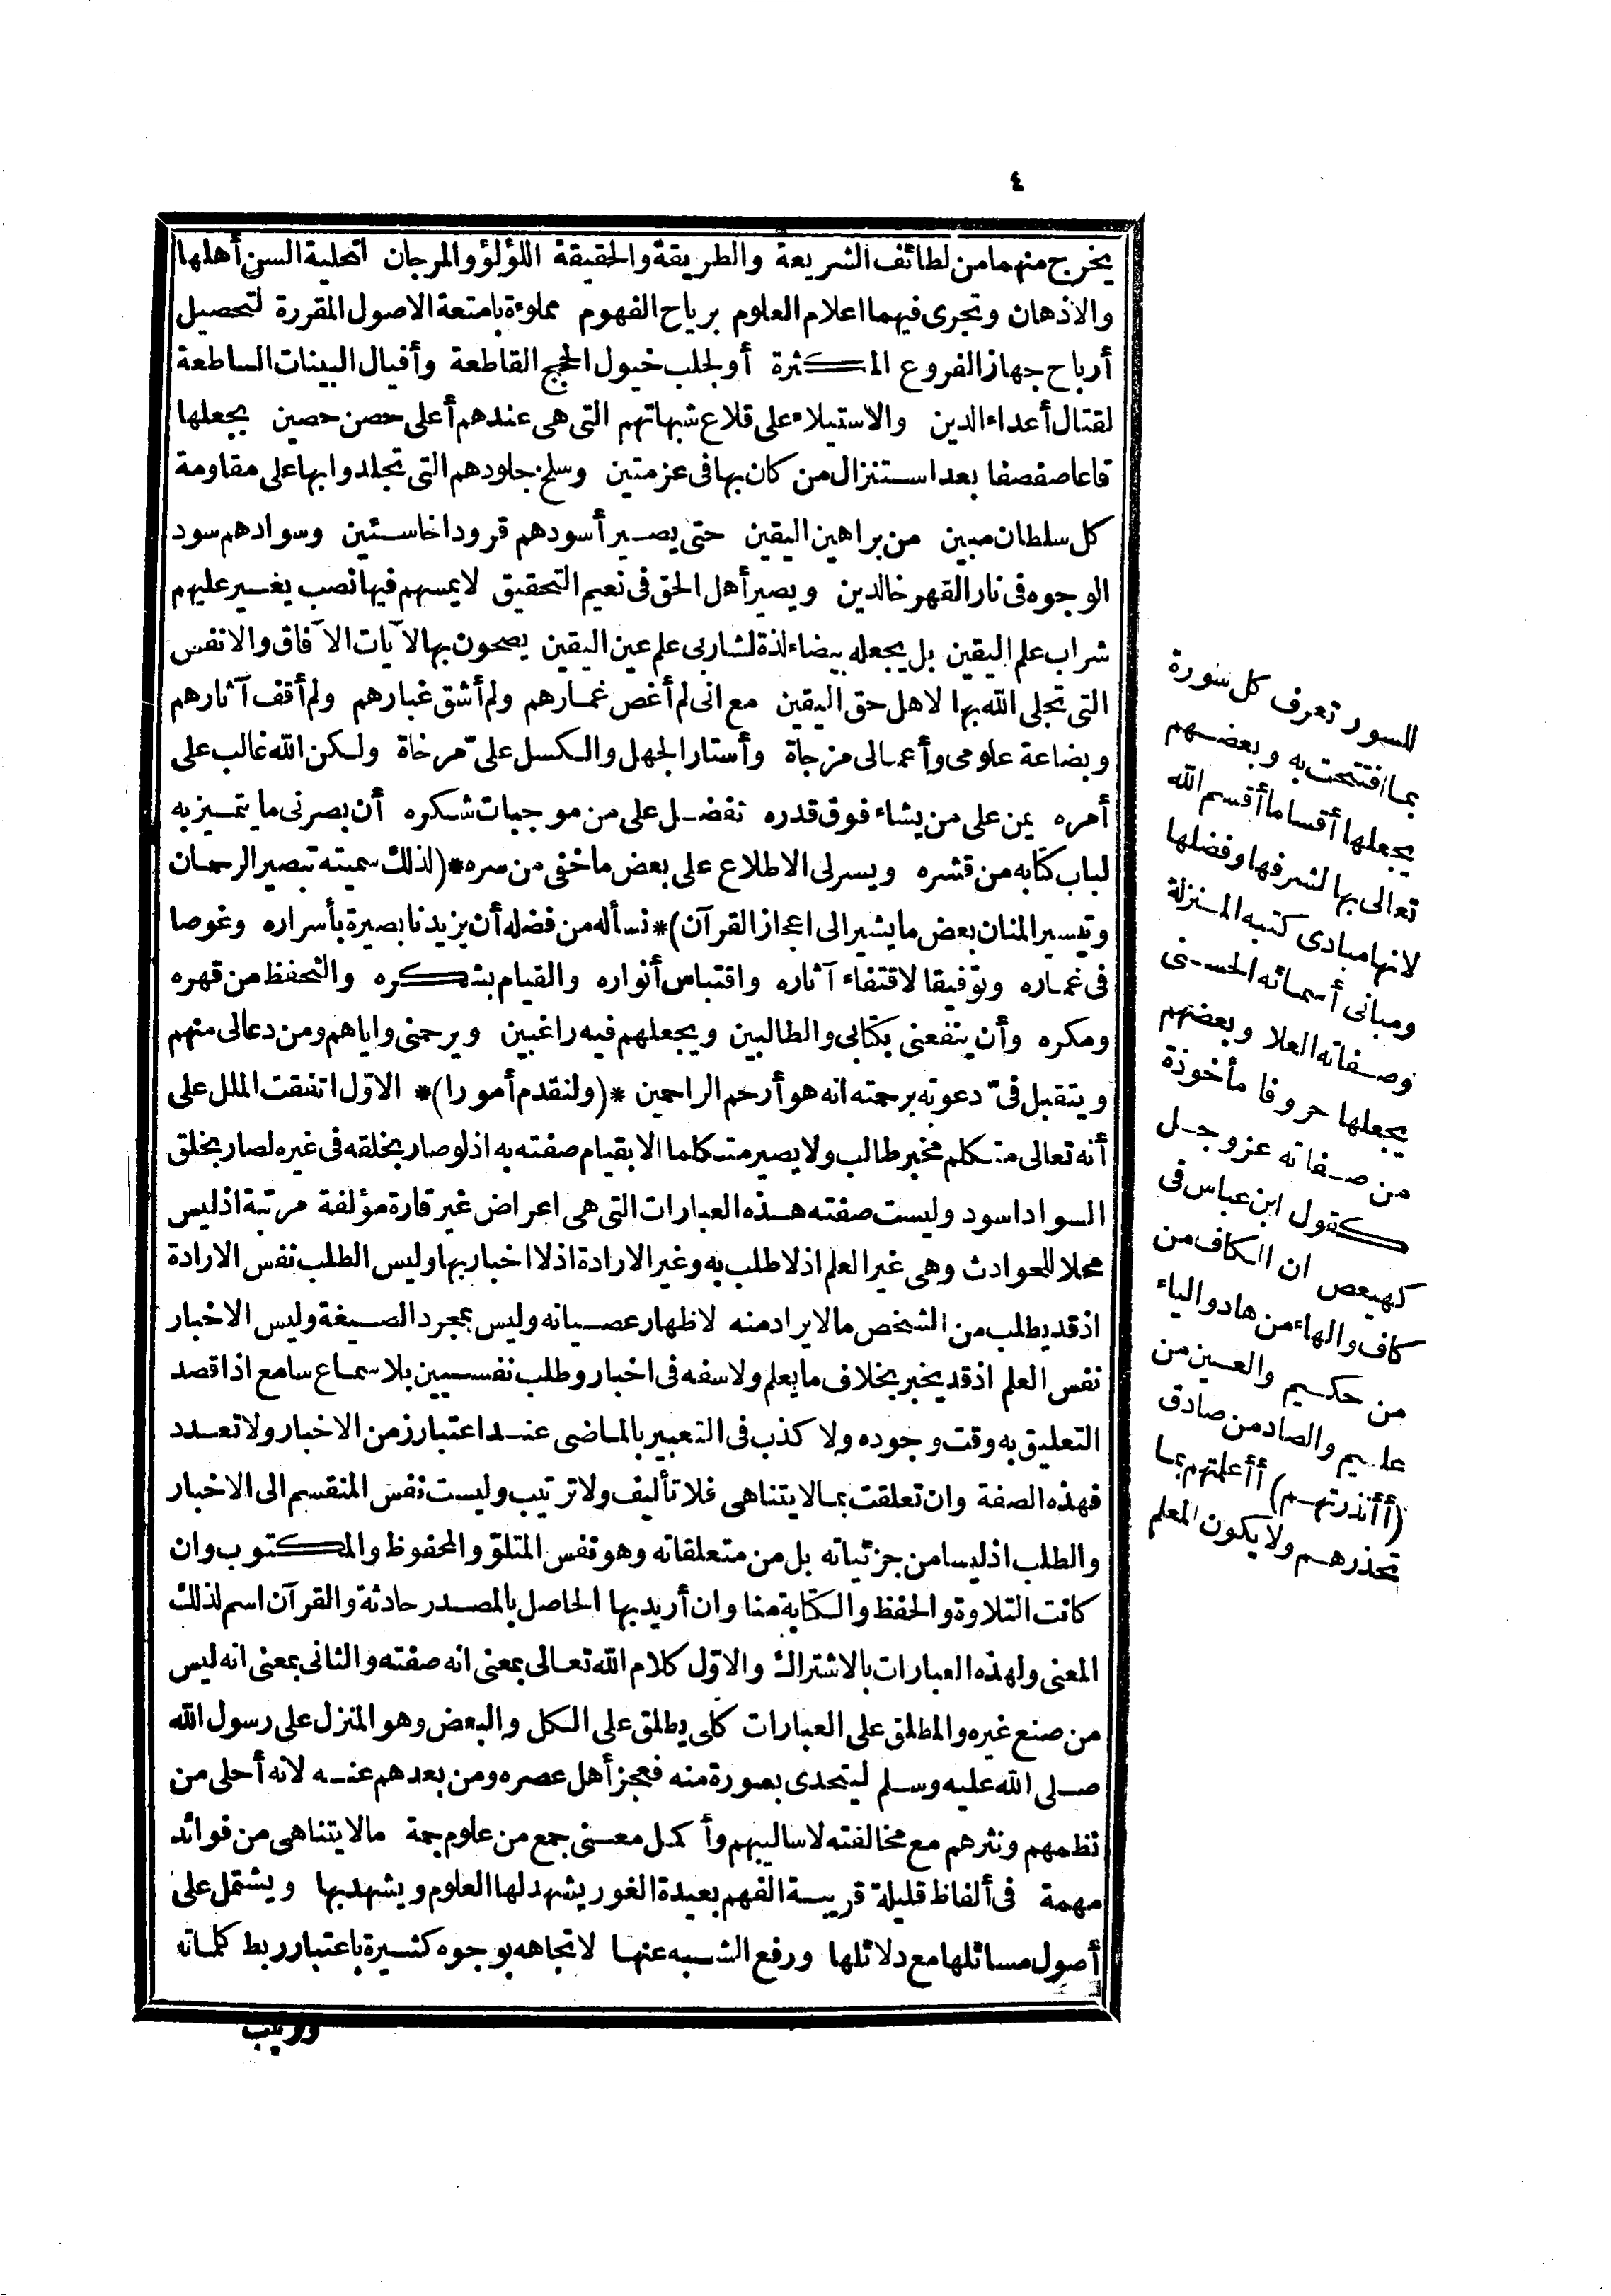 ٤
يخرج منهما من لطائف الشريعة والطريقة والحقيقة اللؤلؤ والمرجان لتحلية السن أهلها
والاذهان وتجرى فيهما اعلام العلوم برياح الفهوم مملوءة بامتعة الاصول المقررة لتحصيل
أرباح جهاز الفروع المكثرة أو لجلب خيول الحجج القاطعة وأفيال البينات الساطعة
لقتال أعداء الدين والاستيلاء على قلاع شبهاتهم التى هى عندهم أعلى حصن حصين يجعلها
قاعا صفصفا بعد استنزال من كان بها فى عز متين وسلخ جلودهم التى تجلدوا بها على مقاومة
كل سلطان مبين من براهين اليقين حتى يصير أسودهم قرودا خاسئين وسوادهم سود
الوجوه فى نار القهر خالدين ويصير أهل الحق فى نعيم التحقيق لا يمسهم فيها نصب يغسير عليهم
شراب علم اليقين بل يجعله بيضاء لذة لشاربى علم عين اليقين يصحون بها لآيات الآفاق والانفس
التى تجلى الله بها لاهل حق اليقين مع انى لم أغص غمارهم ولم أشق غبارهم ولم أقف آثارهم
وبضاعة علومى وأعمالى مزجاة وأستار الجهل والكسل علىّ مرخاة ولكن الله غالب على
أمره يمن على من يشاء فوق قدره تفضل على من موجبات شكره أن بصرنى ما يتميز به
لباب كتابه من قشره ويسر لى الاطلاع على بعض ما خفى من سره *(لذلك سميته تبصير الرحمان
وتيسير المنان بعض ما يشير الى اعجاز القرآن)* نسأله من فضله أن يزيدنا بصيرة بأسراره وغوصا
فى غماره وتوفيقا لاقتفاء آثاره واقتباس أنواره والقيام بشكره والتحفظ من قهره
ومكره وأن ينفعنى بكتابى والطالبين ويجعلهم فيه راغبين ويرحمنى واياهم ومن دعا لى منهم
ويتقبل فىّ دعوته برحمته انه هو أرحم الراحمين *(ولنقدم أمورا)* الاوّل اتفقت الملل على
أنه تعالى متكلم مخبر طالب ولا يصير متكلما الا بقيام صفته به اذ لو صار بخلقه فى غيره لصار بخلق
السواد اسود وليست صفته هذه العبارات التى هى اعراض غير قارة مؤلفة مرتبة اذ ليس
محلا للحوادث وهى غير العلم اذ لا طلب به وغير الارادة اذ لا اخبار بها وليس الطلب نفس الارادة
اذ قد يطلب من الشخص ما لا يراد منه لاظهار عصيانه وليس بمجرد الصيغة وليس الاخبار
نفس العلم اذ قد يخبر بخلاف ما يعلم ولا سفه فى اخبار وطلب نفسيين بلا سماع سامع اذا قصد
التعليق به وقت وجوده ولا كذب فى التعبير بالماضى عند اعتبار زمن الاخبار ولا تعدد
فهذه الصفة وان تعلقت بما لا يتناهى فلا تأليف ولا ترتيب وليست نفس المنقسم الى الاخبار
والطلب اذ ليسا من جزئياته بل من متعلقاته وهو نفس المتلوّ والمحفوظ والمكتوب وان
كانت التلاوة والحفظ والكتابة منا وان أريد بها الحاصل بالمصدر حادثة والقرآن اسم لذلك
المعنى ولهذه العبارات بالاشتراك والاوّل كلام الله تعالى بمعنى انه صفته والثانى بمعنى انه ليس
من صنع غيره والمطلق على العبارات كلى يطلق على الكل والبعض وهو المنزل على رسول الله
صلى الله عليه وسلم ليتحدى بصورة منه فعجز أهل عصره ومن بعدهم عنه لانه أحلى من
نظمهم ونثرهم مع مخالفته لاساليبهم وأكمل معنى جمع من علوم جمة ما لا يتناهى من فوائد
مهمة فى ألفاظ قليلة قريبة الفهم بعيدة الغور يشهد لها العلوم ويشهد بها ويشتمل على
أصول مسائلها مع دلائلها ورفع الشبه عنها لاتجاهه بوجوه كثيرة باعتبار ربط كلماته
للسور تعرف كل سورة
بما افتتحت به وبعضهم
يجعلها أقساما أقسم الله
تعالى بها لشرفها وفضلها
لانها مبادى كتبه المنزلة
ومبانى أسمائه الحسنى
وصفاته العلا وبعضهم
يجعلها حروفا مأخوذة
من صفاته عز وجل
كقول ابن عباس فى
كهيعص ان الكاف من
كاف والهاء من هاد والياء
من حكيم والعين من
عليم والصاد من صادق
(أأنذرتهم) أأعلمتهم بما
تحذرهم ولا يكون المعلم